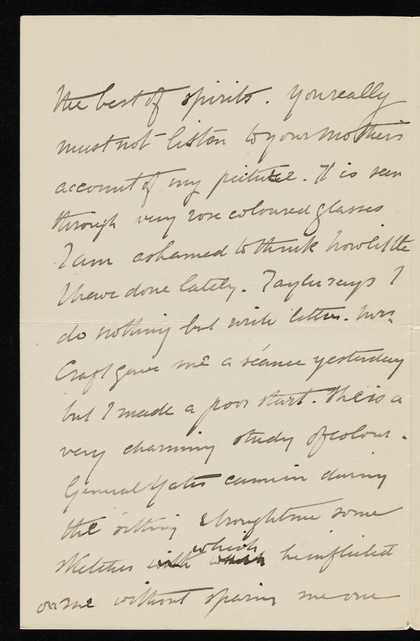 the best of spirits. You really
must not listen to your mother's
account of my picture. It is seen
through very rose coloured glasses
I am ashamed to think how little
I have done lately. Taylu says I
do nothing but write letters. Mrs.
Craft gave me a séance yesterday
but I made a poor start. She is a
very charming study of colour.
General Yates came in during
the sitting & brought me some
sketches with which he inflicted
on me without sparing me one